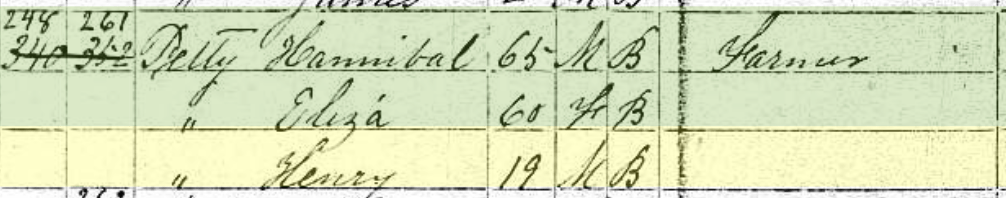 James M B
248 261
340 352 Petty Hannibal 65 M B Farmer
" Eliza 60 F B
" Henry 19 M B